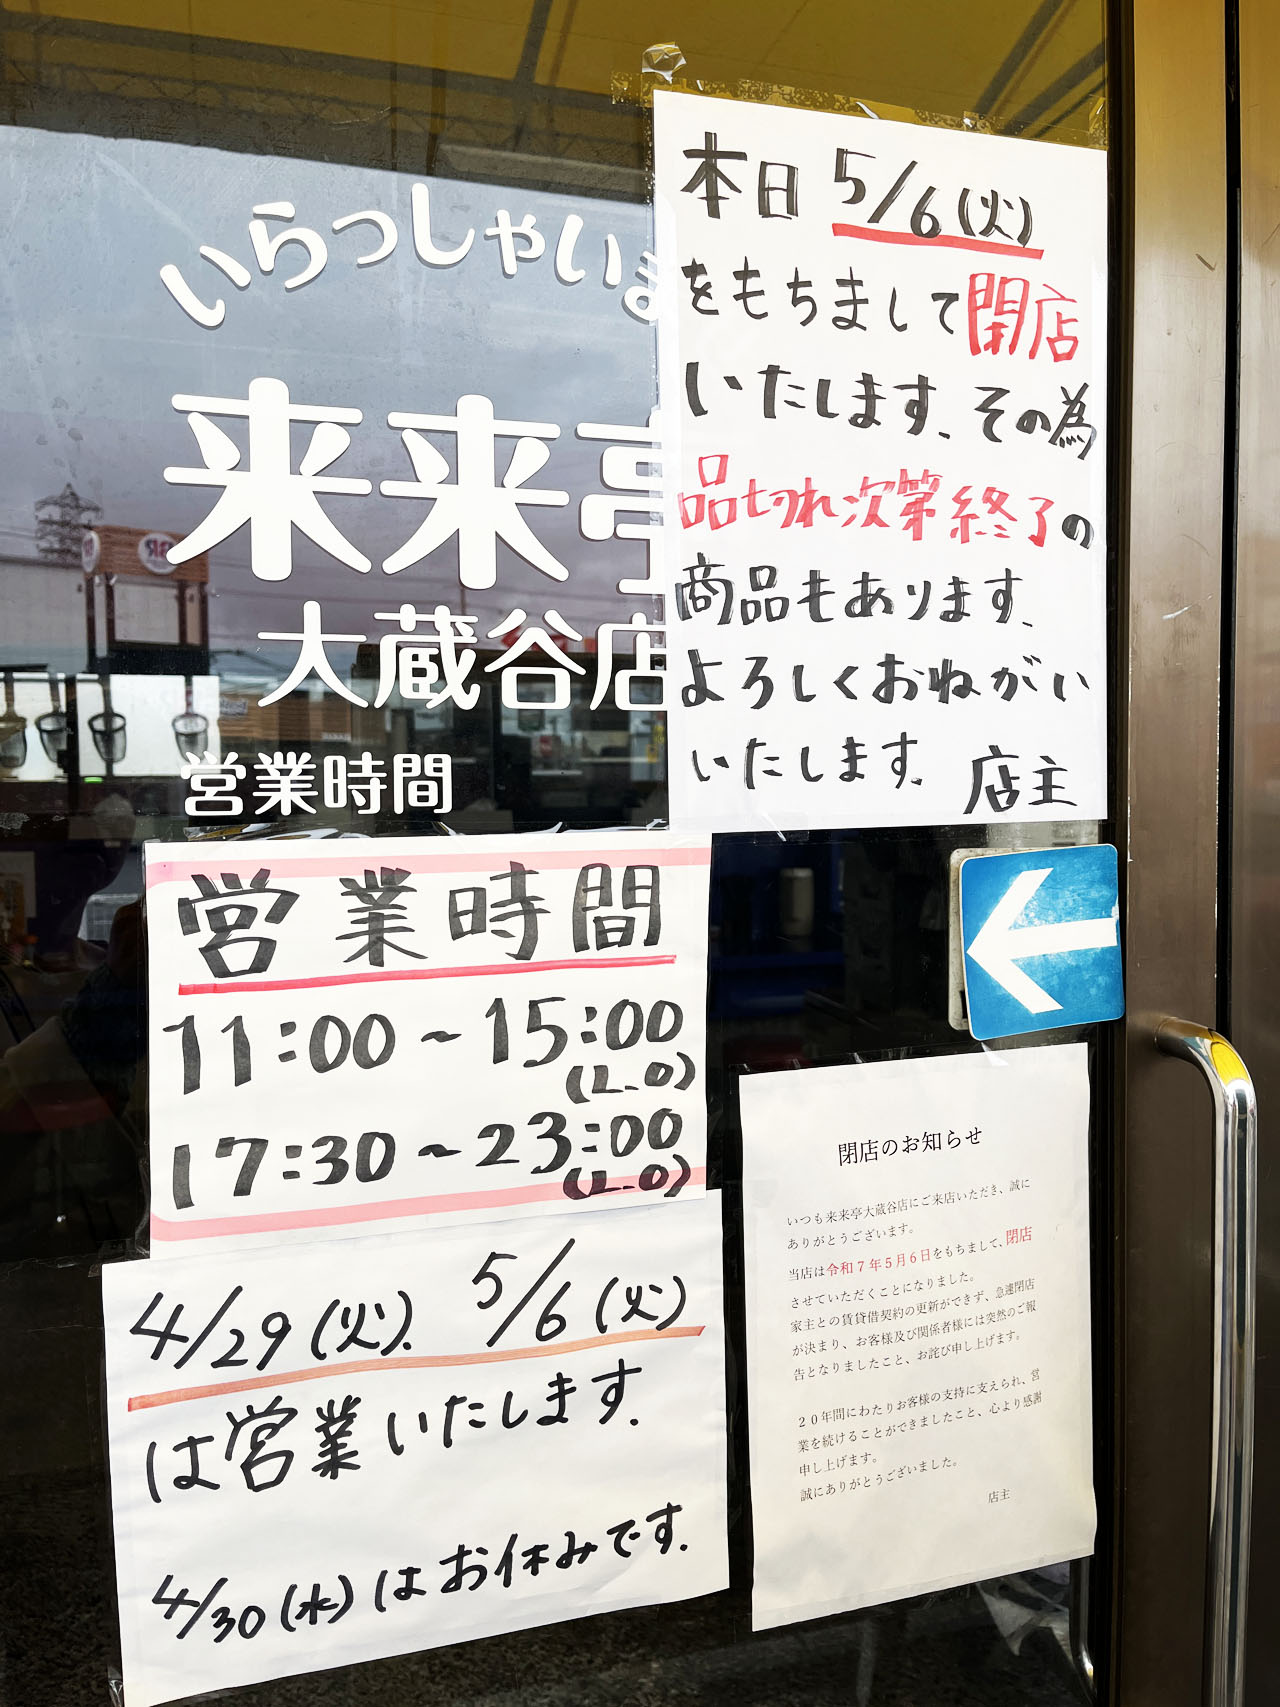 いらっしゃいま
来来亭
大蔵谷店
営業時間
本日 5/6(火)
をもちまして閉店
いたします。その為
品切れ次第終了の
商品もあります。
よろしくおねがい
いたします。 店主
営業時間
11:00~15:00
(L.O)
17:30~23:00
(L.O)
4/29(火)、5/6(火)
は営業いたします。
4/30(水)はお休みです。
閉店のお知らせ
いつも来来亭大蔵谷店にご来店いただき、誠に
ありがとうございます。
当店は令和7年5月6日をもちまして、閉店
させていただくことになりました。
家主との賃貸借契約の更新ができず、急遽閉店
が決まり、お客様及び関係者様には突然のご報
告となりましたこと、お詫び申し上げます。
20年間にわたりお客様の支持に支えられ、営
業を続けることができましたこと、心より感謝
申し上げます。
誠にありがとうございました。
店主